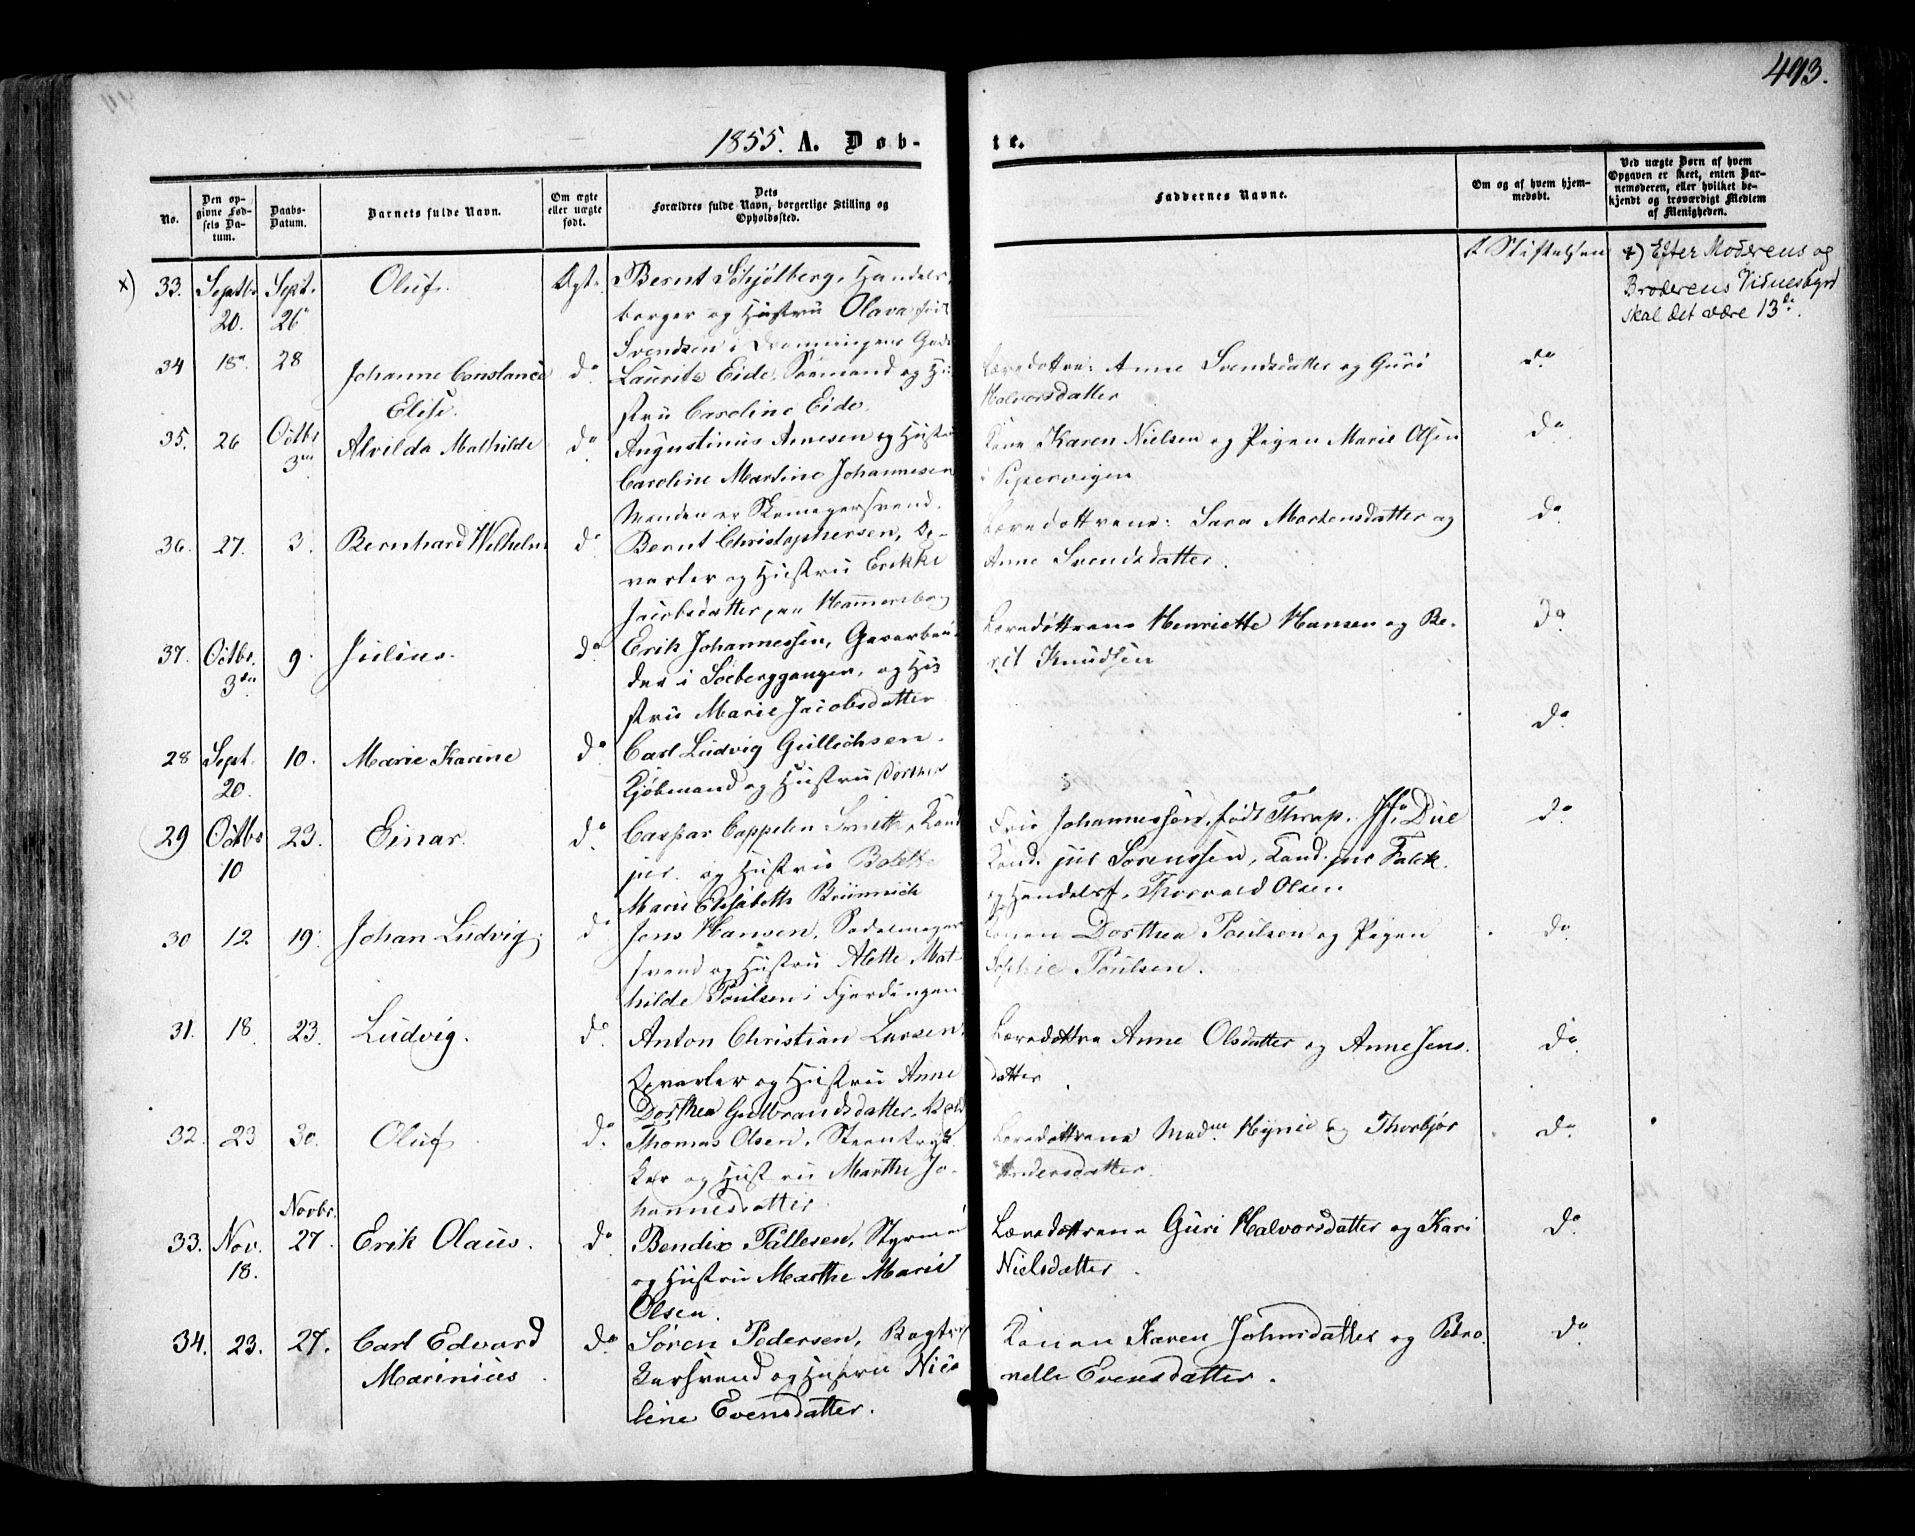 493.
1855. A. Døb-
te.
No.
Den opgivne Fødsels Datum.
Daabs-Datum.
Barnets fulde Navn.
Om ægte eller uægte født.
Dets Forældres fulde Navn, borgerlige Stilling og Opholdssted.
Faddernes Navne.
Om og af hvem hjemmedøbt.
Ved uægte Børn af hvem Opgaven er skeet, enten Barnemoderen, eller hvilket bekjendt og troværdigt Medlem af Menigheden.
x) 33. Septbr 20. Sept. 26 Oluf. Ægt. Bernt Schjølberg, Handels
borger og Hustru Olava født
Svendsen i Dronningens Gade
i Stiftelsen
x) Efter Moderens og
Broderens Vidnesbyrd
skal det være 13de.
34 18 28 Johanne Constance
Elise. do Lauritz Eide, Sømand og Hu
stru Caroline Eide.
Anne Svendsdatter og Guri
Halvorsdatter
do
35. 26 Octbr 3 Alvilda Mathilde do Augustinus Arnesen og Hustru
Caroline Martine Johannesen
Manden er Skomagersvend.
Kone Karen Nielsen og Pigen Marie Olsen
i Pipervigen
do
36. 27. 3. Bernhard Wilhelm do Bernt Christophersen, Op-
varter og Hustru Erikke
Jacobsdatter paa Hammersborg
Læredøttrene: Sara Mortensdatter og
Anne Svendsdatter.
do
37. Octbr. 3die 9. Julius. do Erik Johannessen, Gaardarbei
der i Soeberggangen, og Hu
stru Marie Jacobsdatter
Læredøttrene Henriette Hansen og Be-
rit Knudsen
do
28 Sept. 20. 10. Marie Karine do Carl Ludvig Gullichsen.
Kjøbmand og Hustru Dorthea
do
29 Octbr 10 23. Einar. do Caspar Cappelen Smith, Kand
jur. og Hustru Bolette
Marie Elisabeth Brünnich
Fru Johannessen, født Thrap. Due
Kand. jur Sørenssen, Kand. jur Falck.
og Handelsf. Thorvald Olsen
do
30 12 19. Johan Ludvig. do Jens Hansen, Sadelmager
svend og Hustru Alette Mat-
hilde Poulsen i Fjerdingen
Konen Dorthea Poulsen og Pigen
Sophie Poulsen.
do
31. 18. 23. Ludvig. do Anton Christian Larsen
Opvarter og Hustru Anne
Dorthea Gulbrandsdatter,
Læredøttre Anne Olsdatter og Anne Jens.
datter
do
32. 23 30. Oluf do Thomas Olsen, Steentryk
ker og Hustru Marthe Jo-
hannesdatter
Læredøttrene Madme Hynie og Thorbjør
Andersdatter.
do
33. Nov. 18. Novbr. 27. Erik Olaus. do Bendix Pallesen, Styrmd
og Hustru Marthe Marie
Olsen.
Læredøttrene Guri Halvorsdatter og Kari
Nielsdatter.
do
34. 23. 27. Carl Edvard
Marinius do Søren Pedersen, Bogtryk
kersvend og Hustru Nico
line Evensdatter.
Konen Karen Johnsdatter og Petro.
nelle Evensdatter.
do